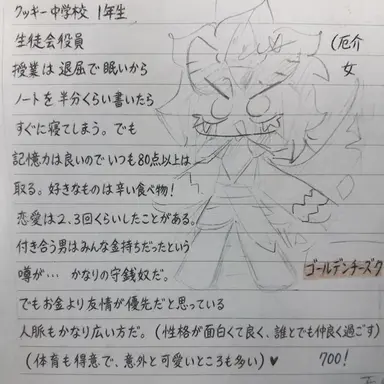 クッキー中学校 1年生
生徒会役員
(厄介
授業は退屈で眠いから
女
ノートを半分くらい書いたら
すぐに寝てしまう。でも
記憶力は良いのでいつも80点以上は
取る。好きなものは辛い食べ物!
恋愛は2、3回くらいしたことがある。
付き合う男はみんな金持ちだったという
噂が… かなりの守銭奴だ。
ゴールデンチーズク
でもお金より友情が優先だと思っている
人脈もかなり広い方だ。(性格が面白くて良く、誰とでも仲良く過ごす)
(体育も得意で、意外と可愛いところも多い)♥ 700!